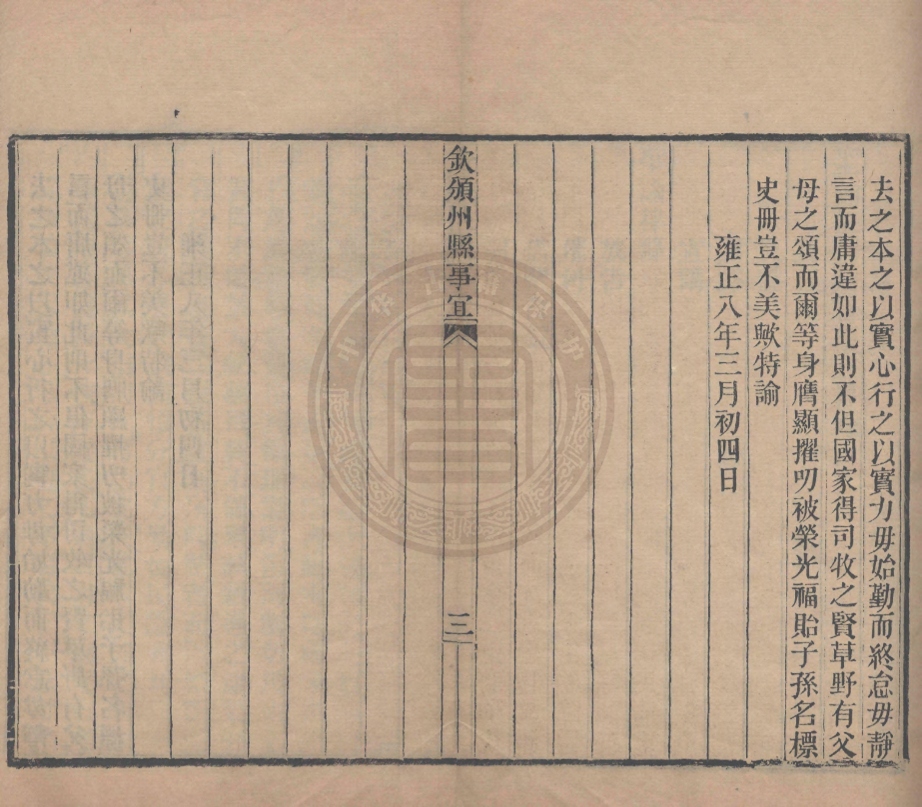 去之本之以實心行之以實力毋始勤而終怠毋靜
言而庸違如此則不但國家得司牧之賢草野有父
母之頌而爾等身膺顯擢叨被榮光福貽子孫名標
史冊豈不美歟特諭
雍正八年三月初四日
欽頒州縣事宜
三